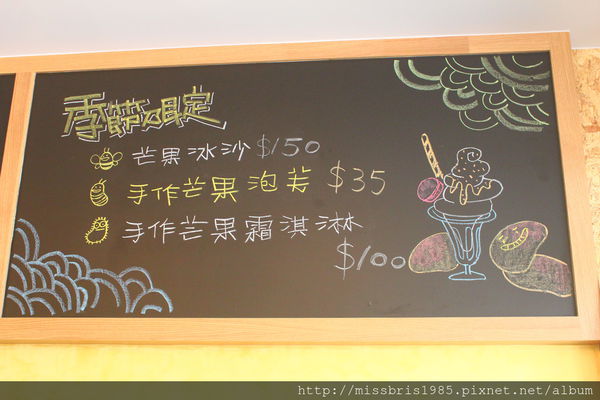 季節限定
芒果冰沙 $150
手作芒果泡芙 $35
手作芒果霜淇淋
$100
http://missbris1985.pixnet.net/album